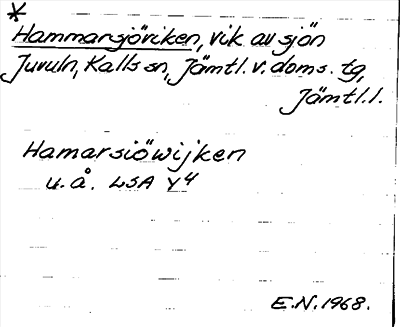 *
Hammarsjöviken, vik av sjön
Juvuln, Kalls sn, Jämtl. v. doms. tg,
Jämtl. l.
Hamarsiöwijken
u. å. LSA Y4
E.N. 1968.